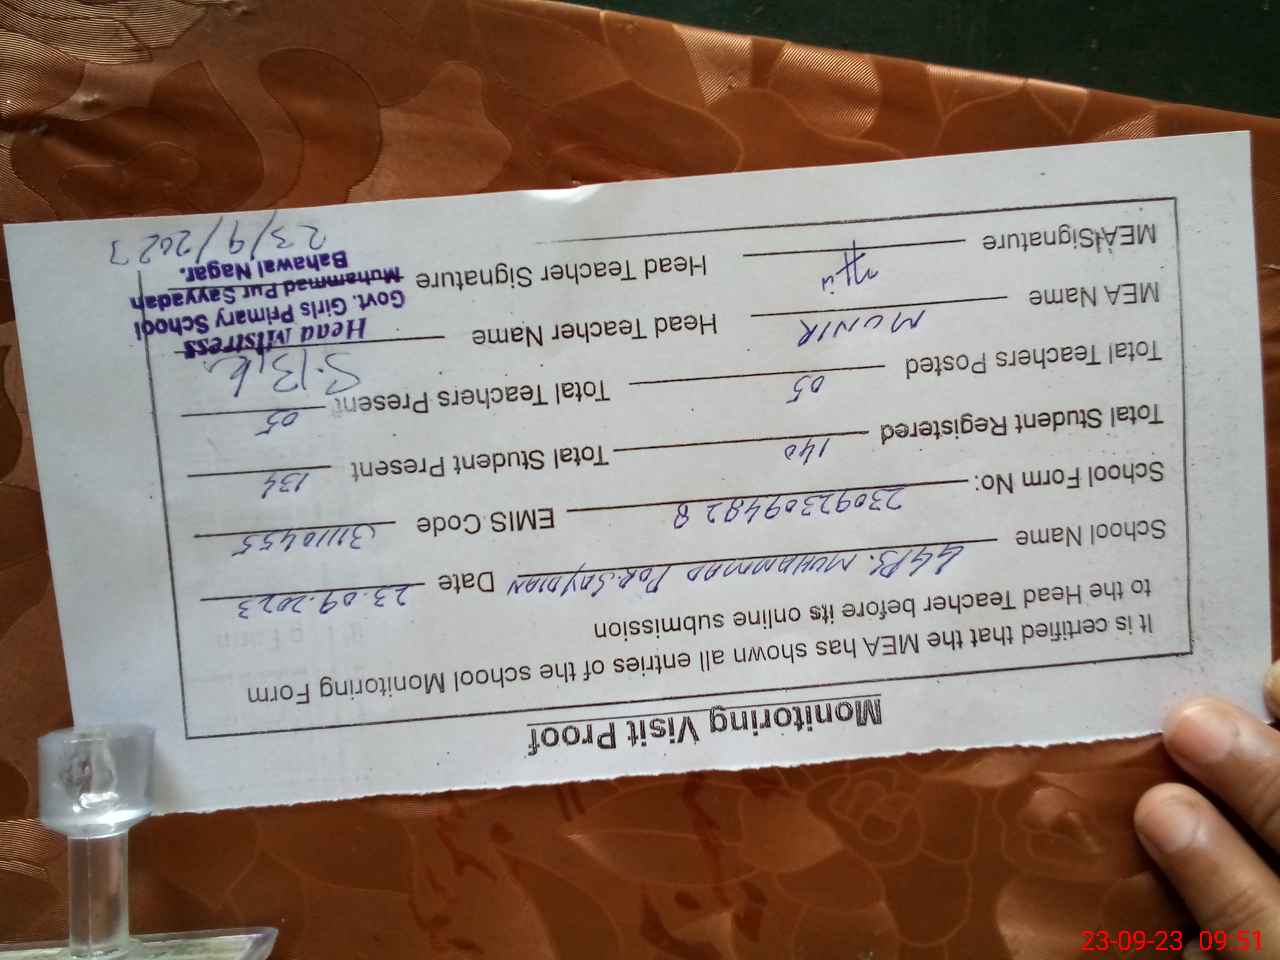 Monitoring Visit Proof
It is certified that the MEA has shown all entries of the school Monitoring Form
to the Head Teacher before its online submission
School Name GGPS. MUHAMMAD POR.SAYDIAN Date 23.09.2023
School Form No: 230923094828 EMIS Code 31110455
Total Student Registered 140 Total Student Present 134
Total Teachers Posted 05 Total Teachers Present 05
MEA Name MUNIR Head Teacher Name
Head Mistress
Govt. Girls Primary School
MEA Signature Head Teacher Signature Muhammad Pur Sayyadan
Bahawal Nagar.
23/9/2023
23-09-23 09:51